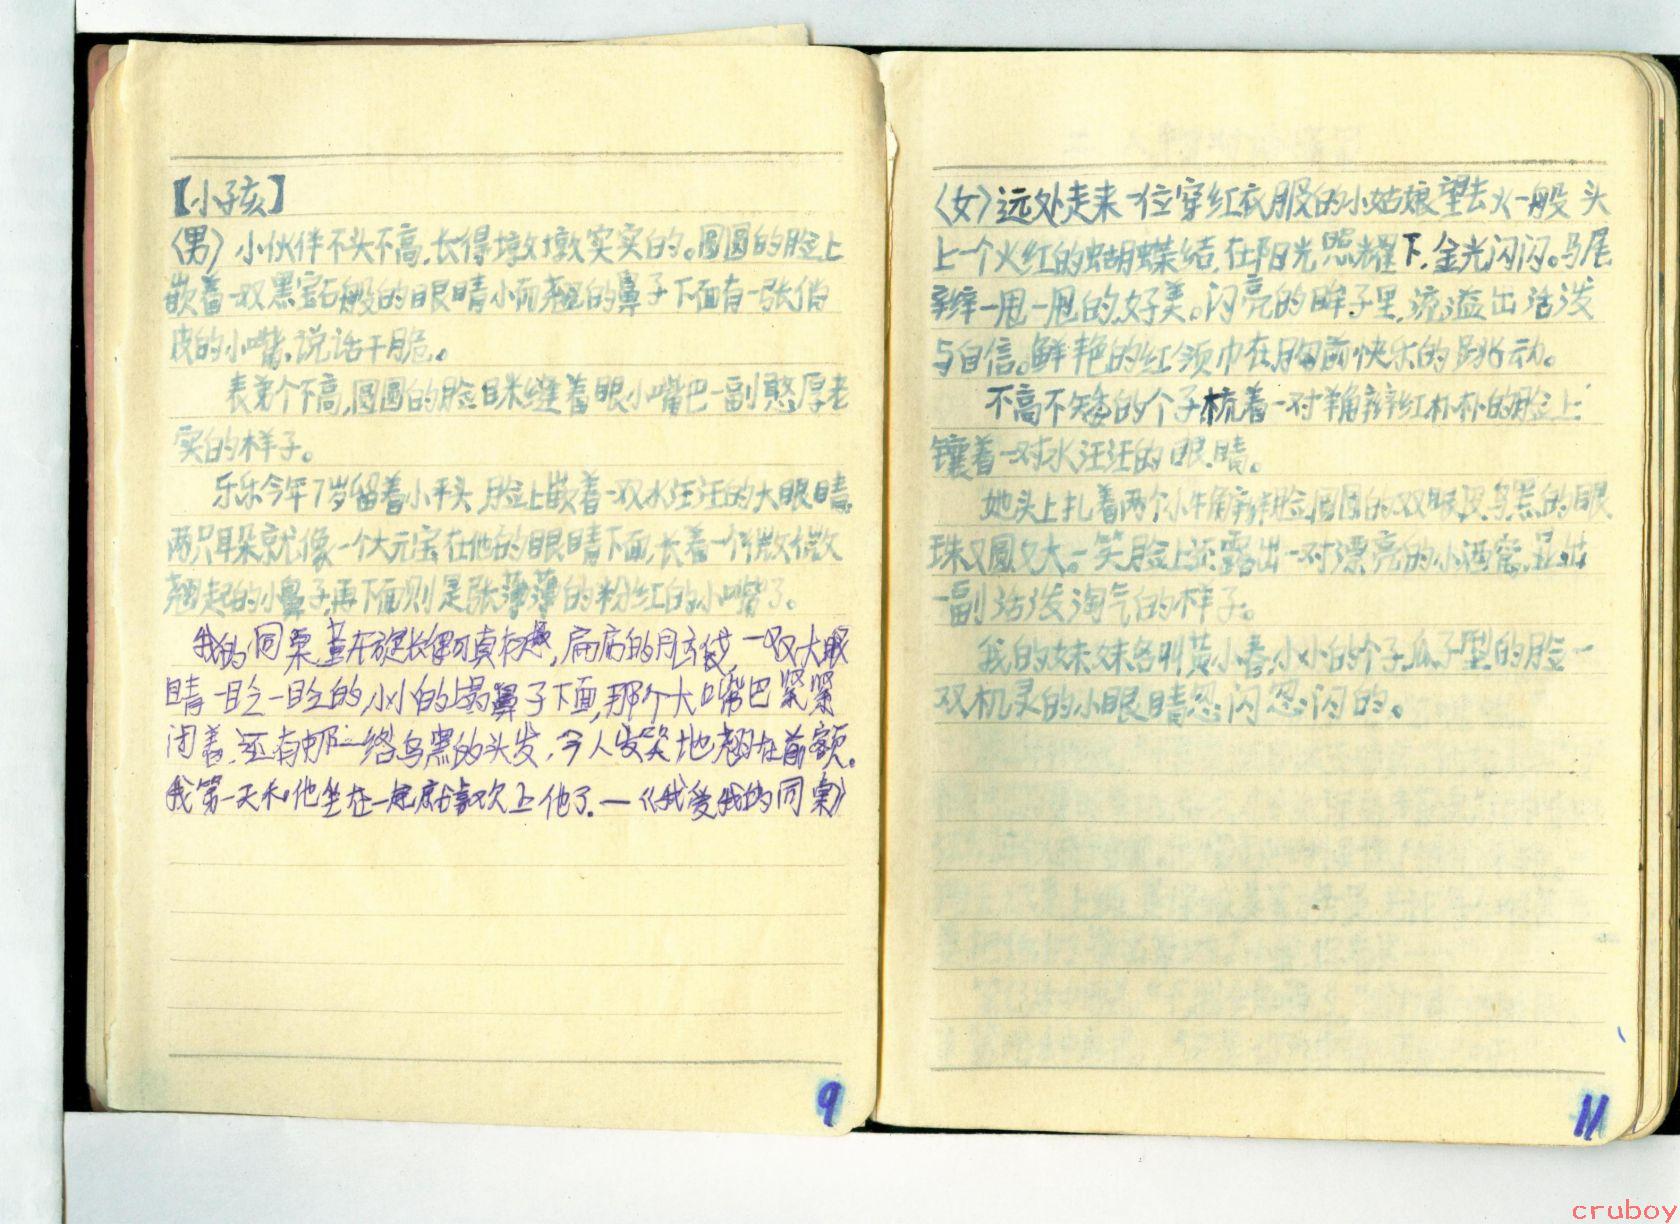 【小孩】
〈男〉小伙伴不头不高,长得墩墩实实的。圆圆的脸上
嵌着一双黑宝石般的眼睛小而翘的鼻子下面有一张俏
皮的小嘴,说话干脆。
表弟个不高,圆圆的脸眯缝着眼小嘴巴一副憨厚老
实的样子。
乐乐今年7岁留着小平头,脸上嵌着一双水汪汪的大眼睛,
两只耳朵就像一个大元宝,在他的眼睛下面,长着一个微微
翘起的小鼻子,再下面则是张薄薄的粉红的小嘴了。
我的同桌,长得可真有趣,扁扁的脸,一双大眼
睛一眨一眨的,小小的塌鼻子下面,那个大嘴巴紧紧
闭着,还有那一绺乌黑的头发,令人发笑地翘在前额。
我第一天和他坐在一起就喜欢上他了.—《我爱我的同桌》
9
〈女〉远处走来一位穿红衣服的小姑娘望去火一般 头
上一个火红的蝴蝶结,在阳光照耀下,金光闪闪。马尾
辫一甩一甩的,好美。闪亮的眸子里,流溢出活泼
与自信。鲜艳的红领巾在胸前快乐的跳动。
不高不矮的个子梳着一对羊角辫红朴朴的脸上
镶着一对水汪汪的眼睛。
她头上扎着两个小牛角辫脸圆圆的双眼皮,乌黑的眼
珠又圆又大。一笑脸上还露出一对漂亮的小酒窝,显出
一副活泼淘气的样子。
我的妹妹名叫黄小春,小小的个子,瓜子型的脸一
双机灵的小眼睛忽闪忽闪的。
11
cruboy